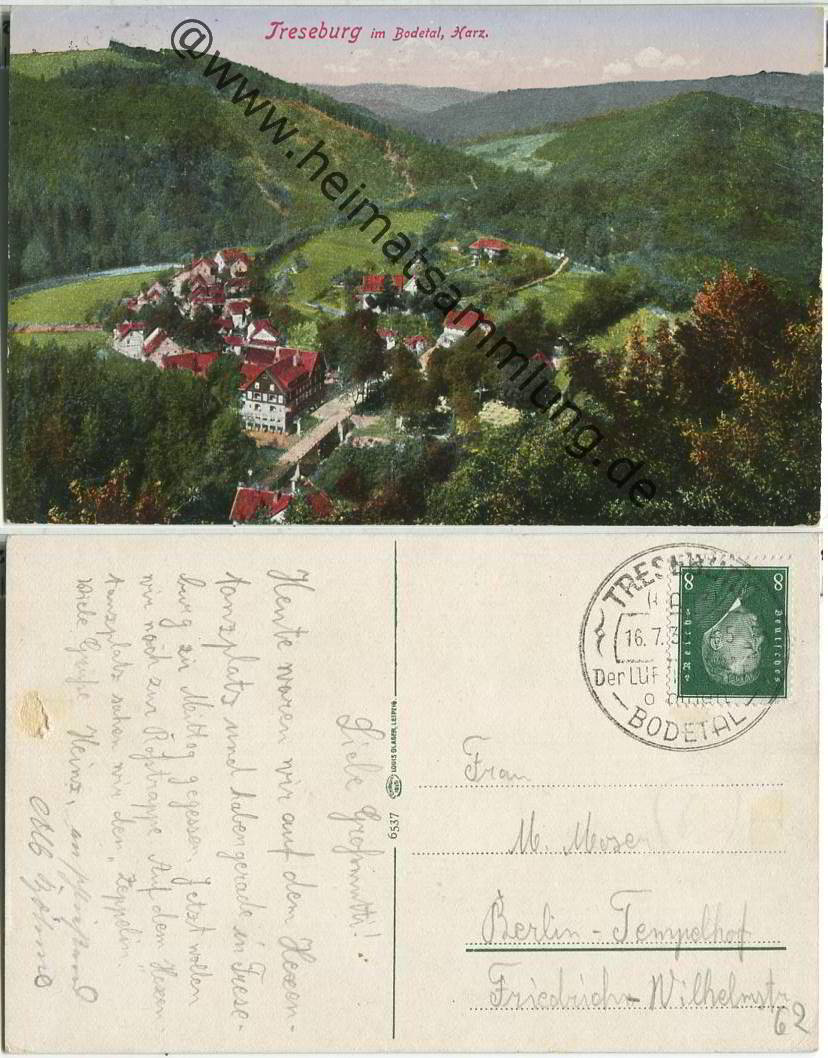 Treseburg im Bodetal, Harz.
@www.heimatsammlung.de
Liebe Großmutti!
Heute waren wir auf dem Hexen-
tanzplatz und haben gerade in Trese-
burg zu Mittag gegessen. Jetzt wollen
wir noch zur Roßtrappe. Auf dem Hexen-
tanzplatz sahen wir den „Zeppelin."
Viele Grüße Heinz,
LOUIS GLASER, LEIPZIG.
6537
TRESEBURG
16.7.3
Der LUF
BODETAL
8 8
Deutsches
Reich
Frau
M. Moser
Berlin - Tempelhof
Friedrich-Wilhelmstr
62